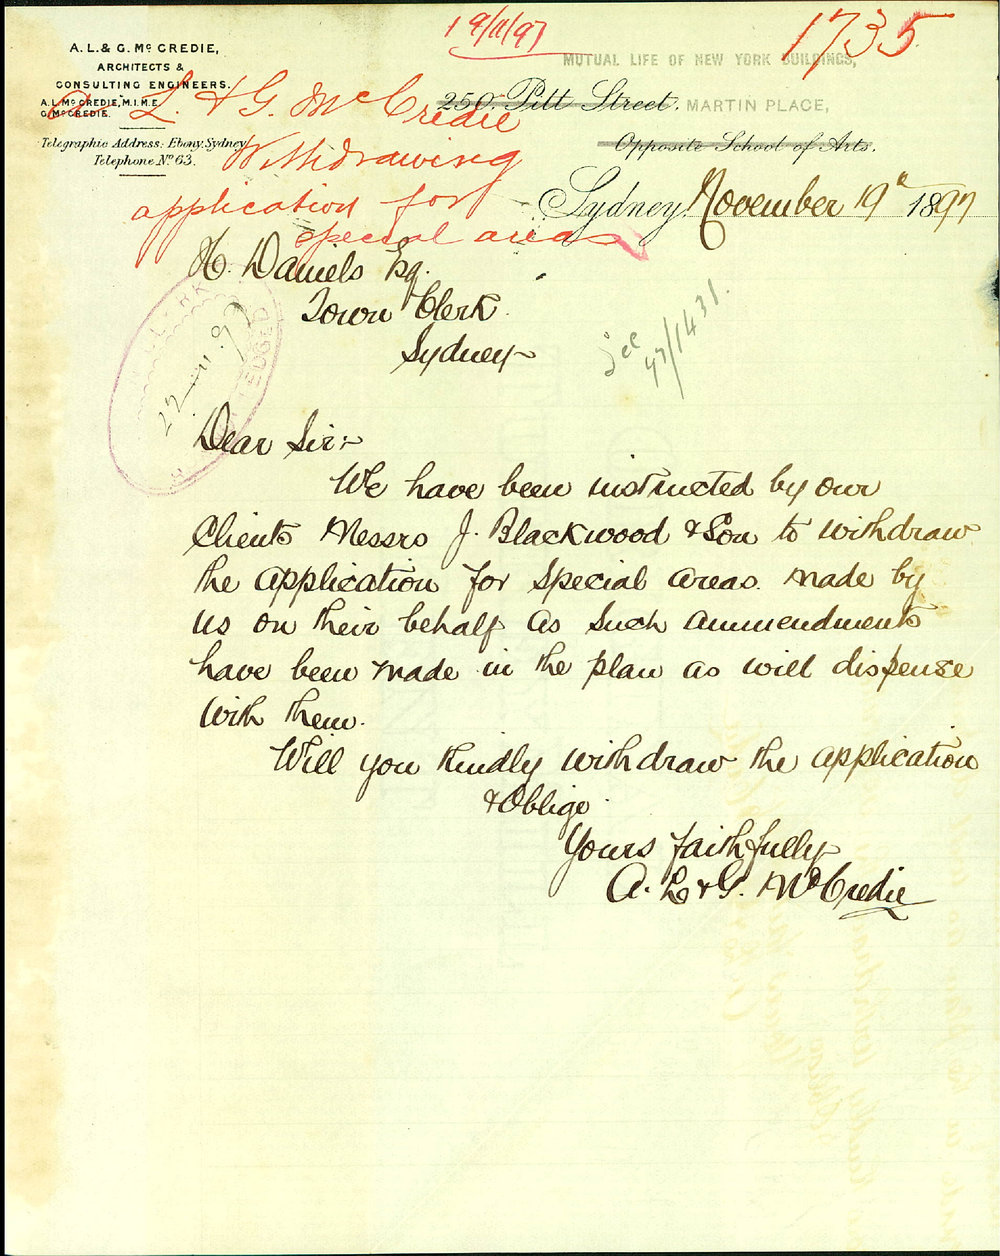 19/11/97
1735
A. L. & G. Mc CREDIE,
ARCHITECTS &
CONSULTING ENGINEERS.
A. L. Mc CREDIE, M.I.M.E.
G. Mc CREDIE.
Telegraphic Address: Ebony, Sydney
Telephone No 63.
MUTUAL LIFE OF NEW YORK BUILDINGS,
250. Pitt Street. MARTIN PLACE,
Opposite School of Arts.
A. L. & G. McCredie
Withdrawing
application for
special areas
Sydney, November 19th 1897
H. Daniels Esq.
Town Clerk
Sydney
22 11 97
See
97/1431.
Dear Sir:-
We have been instructed by our
Clients Messrs J. Blackwood & Son to withdraw
the application for special areas made by
us on their behalf as such ammendments
have been made in the plan as will dispense
with them.
Will you kindly withdraw the application
& Oblige
Yours faithfully
A. L. & G. McCredie